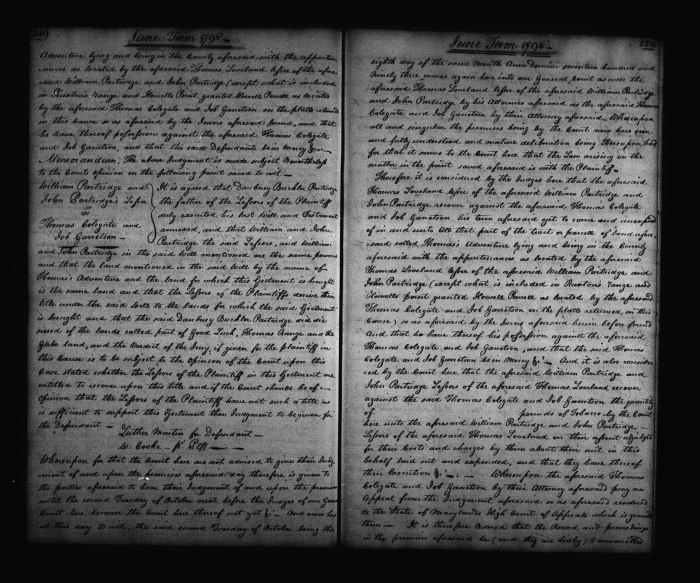 June Term 1796
Adventure lying and being in the County aforesaid with the appurten
ances as located by the aforesaid Thomas Loveland lessee of the afore
said William Partridge and John Partridge (except what is included
in Ruxton's Range and Howells Point granted Howell Powell as located
by the aforesaid Thomas Colegate and Job Garretson on the platts returned
in this Cause so as aforesaid by the Jurors aforesaid found, and that
he have thereof possession against the aforesaid Thomas Colegate
and Job Garretson, and that the said Defendants be in Mercy &c
Memorandum, The above Judgment is made subject
to the Court opinion on the following point saved to wit—
William Partridge and
John Partridge's Lessee
vs
Thomas Colegate and
Job Garretson
It is agreed that Daubney Buckler Partridge
the father of the Lessors of the Plaintiff
duly executed his last Will and Testament
annexed, and that William and John
Partridge the said Lessors, and William
and John Partridge in the said Will mentioned are the same persons
and that the land mentioned in the said Will by the name of
Thomas's Adventure and the Land for which this Ejectment is brought
is the same land and that the Lessors of the Plaintiffs derive their
title under the said Will to the lands for which the said Ejectment
is brought and that the said Daubney Buckler Partridge died
seized of the lands called part of Good Luck, Thomas Range and the
Glebe land, and the Verdict of the Jury, if given for the plaintiff in
this Cause is to be subject to the opinion of the Court upon this
Case stated whether the Lessors of the Plaintiff in this Ejectment are
entitled to recover upon this title and if the Court should be of
opinion that the Lessors of the Plaintiff have not such a title as
is sufficient to support this Ejectment then Judgment to be given for
the Defendant—
Luther Martin for Defendant—
W. Cooke — Pl. Plff—
Whereupon for that the Court here are not advised to give their Judg
ment of and upon the premises aforesaid day therefore is given to
the parties aforesaid to hear their Judgment of and upon the premises
until the second Tuesday of October next before the Judges of our General
Court here because the Court here thereof not yet &c— And now here
at this day to wit, the said second Tuesday of October being the
June Term 1796
eighth day of the same Month Anno Domini seventeen hundred and
Ninety three comes again here into our General Court as well the
aforesaid Thomas Loveland lessee of the aforesaid William Partridge
and John Partridge by his Attornies aforesaid as the aforesaid Thomas
Colegate and Job Garretson by their Attorney aforesaid, Whereupon
all and singular the premises being by the Court now here seen
and fully understood and mature deliberation being thereupon had
for that it seems to the Court here that the Law arising on the
matter in the point saved aforesaid is with the Plaintiff—
Therefore it is considered by the Judges here that the aforesaid
Thomas Loveland lessee of the aforesaid William Partridge and
John Partridge recover against the aforesaid Thomas Colegate
and Job Garretson his term aforesaid yet to come and unexpired
of in and unto All that part of the tract or parcell of Land afore
said called Thomas's Adventure lying and being in the County
aforesaid with the appurtenances as located by the aforesaid
Thomas Loveland lessee of the aforesaid William Partridge and
John Partridge (except what is included in Ruxton's Range and
Howells point granted Howell Powell as located by the aforesaid
Thomas Colegate and Job Garretson on the platts returned in this
Cause) so as aforesaid by the Jurors aforesaid herein before found
And that he have thereof his possession against the aforesaid
Thomas Colegate and Job Garretson, and that the said Thomas
Colegate and Job Garretson be in Mercy &c. And it is also consider
ed by the Court here that the aforesaid William Partridge and
John Partridge Lessors of the aforesaid Thomas Loveland recover
against the said Thomas Colegate and Job Garretson the quantity
of pounds of Tobacco by the Court
here unto the aforesaid William Partridge and John Partridge
Lessors of the aforesaid Thomas Loveland on their assent adjudged
for their Costs and charges by them about their suit in this
behalf laid out and expended, and that they have thereof
their Execution &c— Whereupon the aforesaid Thomas
Colegate and Job Garretson by their Attorney aforesaid pray an
Appeal from the Judgment aforesaid in form aforesaid rendered
to the State of Maryland's High Court of Appeals which is granted
them— It is therefore Ordered that the Record and proceedings
in the premises aforesaid be (and they are hereby) transmitted